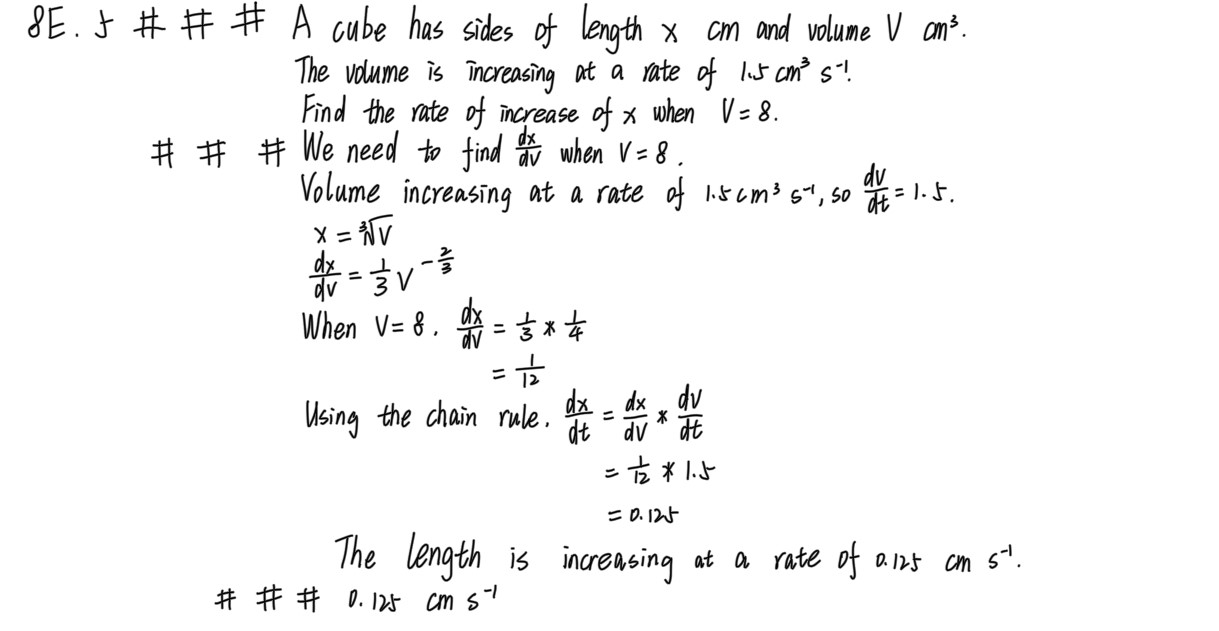 8E. 5 # # # A cube has sides of length x cm and volume V cm³.
The volume is increasing at a rate of 1.5 cm³ s⁻¹.
Find the rate of increase of x when V = 8.
# # # We need to find dx/dv when V = 8.
Volume increasing at a rate of 1.5 cm³ s⁻¹, so dv/dt = 1.5.
x = ³√V
dx/dv = 1/3 V^(-2/3)
When V = 8. dx/dv = 1/3 * 1/4
= 1/12
Using the chain rule. dx/dt = dx/dv * dv/dt
= 1/12 * 1.5
= 0.125
The length is increasing at a rate of 0.125 cm s⁻¹.
# # # 0.125 cm s⁻¹